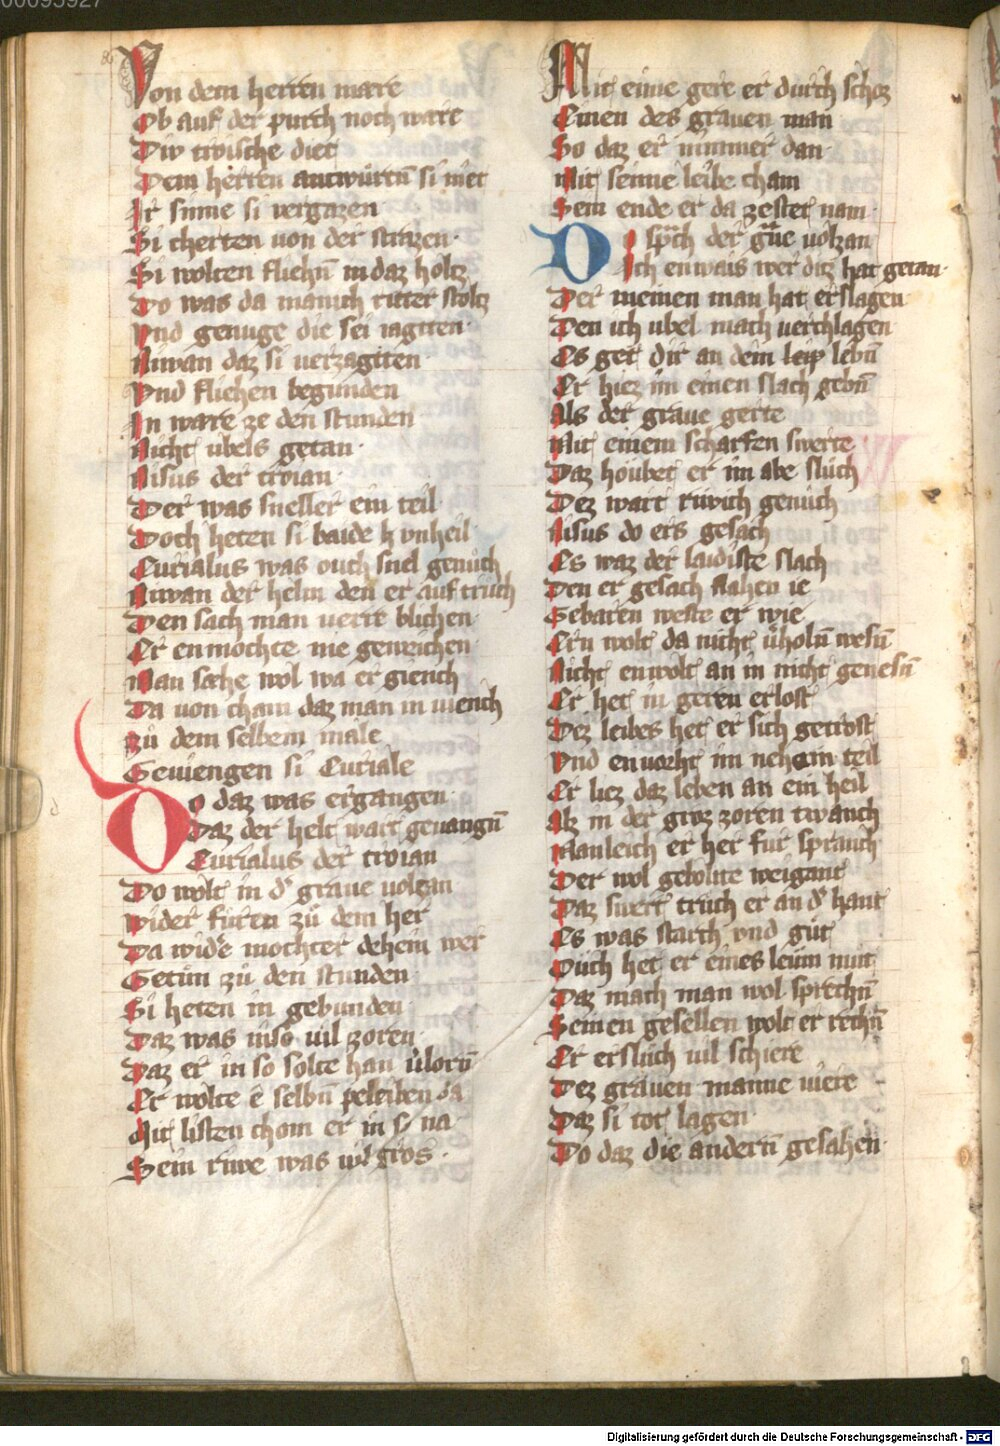 00095927
Von dem herren mare
Ob auf der purch noch ware
Div troische diet
Dem herren antwurten si niet
Ir sinne si vergazen
Si cherten von der strazen
Si wolten fliehn in daz holtz
Do was da manich ritter stoltz
Vnd genuge die sei iagten
Niwan daz si verzagiten
Vnd fliehen begunden
In ware ze den stunden
Nicht ubels getan
Nisus der troian
Der was sneller ein teil
Doch heten si baide vnheil
Curialus was ouch snel genuch
Niwan der helm den er auf truch
Den sach man verre blichen
Er enmochte nie gewichen
Man sæhe wol wa er giench
Da von cham daz man in viench
Zů dem selbem male
Geviengen si Curiale
Do daz was ergangen
Daz der helt wart gevangn̄
Curialus der troian
Do wolt in d' graue volzan
Wider furen zů dem her
Da wid'e mochter dehein wer
Getůn zů den stunden
Si heten in gebunden
Daz was niso vil zoren
Daz er in so solte han v'lorn̄
Er wolte e selbn̄ peleiben da
Mit listen chom er in so na
Sein riwe was vil gros
Mit eime gere er durch schoz
Einen des grauen man
So daz er nimmer dan
Mit seinne leibe cham
Sein ende er da zestet nam
Do sprach der graue volzan
Ich enwais wer ditz hat getan
Der meinen man hat erslagen
Den ich ubel mach verchlagen
Es get dir an dem leip lebn̄
Er hiez im einen slach gebn̄
Als der graue gerte
Mit einem scharfen swerte
Daz houbet er im abe slůch
Dez wart rivich genůch
Nisus do ers gesach
Es waz der laidiste slach
Den er gesach slahen ie
Gebaren weste er wie
Ern wolt da nicht v'holn̄ wesn̄
Nicht enwolt an in nicht genesn̄
Er het in geren erlost
Dez leibes het er sich getrost
Vnd envorht im nehain teil
Er liez daz leben an ein heil
Als in der groz zoren twanch
Manleich er her fur spranch
Der wol gelobte weigant
Daz swert truch er an d' hant
Es was starch vnd gůt
Ouch het er eines lewn mut
Daz mach man wol sprechn̄
Seinen gesellen wolt er rechn̄
Er erslůch vil schiere
Dez grauen manne viere
Daz si tot lagen
Do daz die andern̄ gesahen
Digitalisierung gefördert durch die Deutsche Forschungsgemeinschaft - DFG